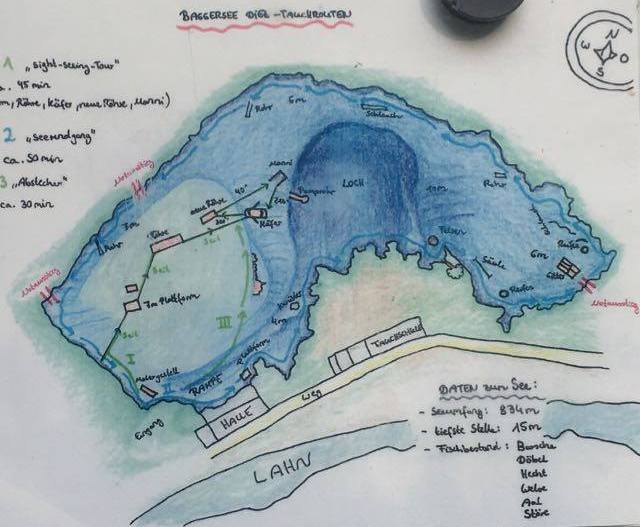 BAGGERSEE DIEZ - TAUCHROUTEN
N
W O
S
1 „sight-seeing-Tour"
. 45 min
m, Röhre, Käfer, neue Röhre, Manni)
2 „Seerundgang"
ca. 50 min
3 „Abstecher"
ca. 30 min
Rohr 6m Schlauch
Notausstieg
Manni
40°
LOCH
10m
Rohr
neue Röhre
Käfer
7m
Rohr
Röhre
Seil
Felsen
Säule
Reifen
6m
Notausstieg
Seil
7m Plattform
4m
Reifen
Notausstieg
Seil
III
I
Plattform
Motorgestell
II
RAMPE
TAUCHSCHULE
Eingang
HALLE
Weg
LAHN
DATEN zum See:
- Seeumfang: 834m
- tiefste Stelle: 15m
- Fischbestand: Barsche
Döbel
Hecht
Welse
Aal
Störe